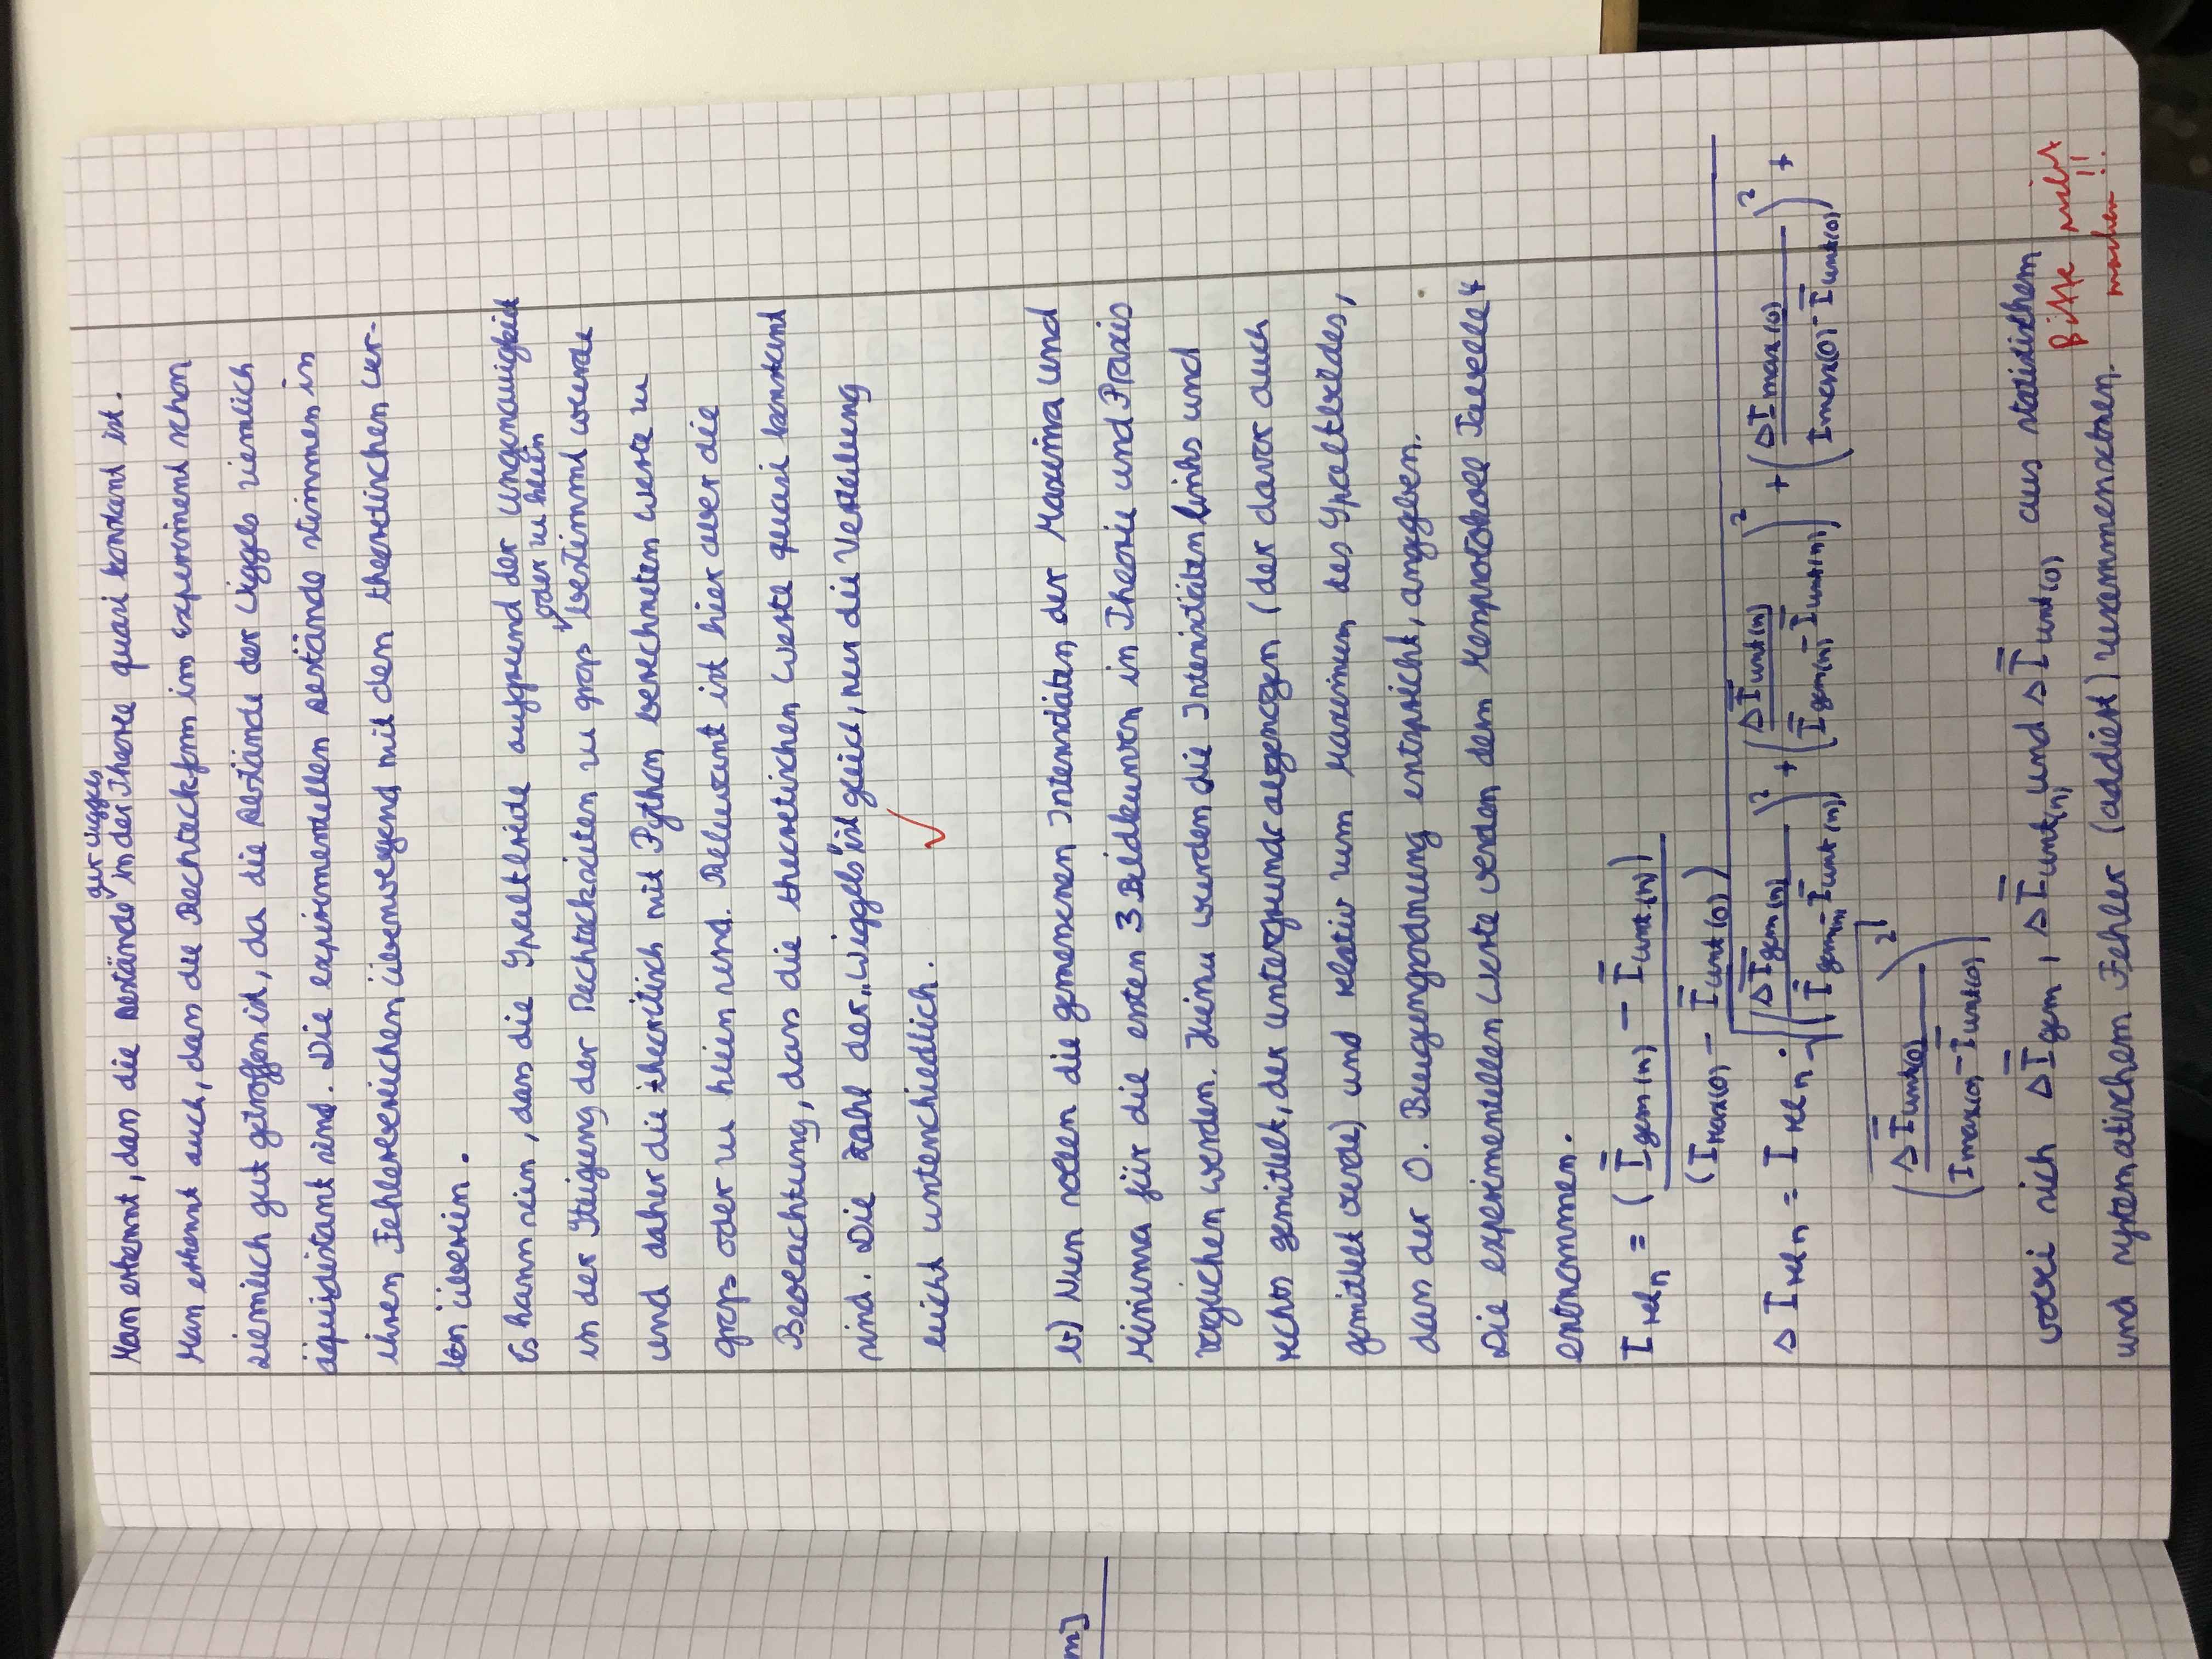 der Wiggels
Man erkennt, dass die Abstände in der Theorie quasi konstant ist.
Man erkennt auch, dass die Rechteckform im Experiment schon
ziemlich gut getroffen ist, da die Abstände der Wiggels ziemlich
äquidistant sind. Die experimentellen Abstände stimmen in
ihren Fehlerbereichen überwiegend mit den theoretischen Wer-
ten überein.
Es kann sein, dass die Spaltbreite aufgrund der Ungenauigkeit
oder zu klein
in der Steigung der Rechteckseiten zu groß bestimmt wurde
und daher die theoretisch mit Python berechneten Werte zu
groß oder zu klein sind. Relevant ist hier aber die
Beobachtung, dass die theoretischen Werte quasi konstant
sind. Die Zahl der „Wiggels" ist gleich, nur die Verteilung
leicht unterschiedlich. ✓
m]
b) Nun sollen die gemessenen Intensitäten der Maxima und
Minima für die ersten 3 Bildkurven in Theorie und Praxis
verglichen werden. Hierzu wurden die Intensitäten links und
rechts gemittelt, der Untergrund abgezogen (der davor auch
gemittelt wurde) und relativ zum Maximum des Spaltbildes,
dass der 0. Beugungsordnung entspricht, angegeben.
Die experimentellen Werte werden dem Messprotokoll Tabelle 4
entnommen.
I rel n = (Ī gem(n) − Ī unt(n)) / (I Max(0) − Ī unt(0))
Δ I rel n = I rel n · √( (Δ Ī gem(n) / (Ī gem(n) − Ī unt(n)))² + (Δ Ī unt(n) / (Ī gem(n) − Ī unt(n)))² + (Δ I max(0) / (I max(0) − Ī unt(0)))² +
(Δ Ī unt(0) / (I max(0) − Ī unt(0)))²
wobei sich Δ Ī gem, Δ Ī unt(n) und Δ Ī unt(0) aus statistischem
und systematischem Fehler (addiert) zusammensetzen.
Bitte nicht
machen!!